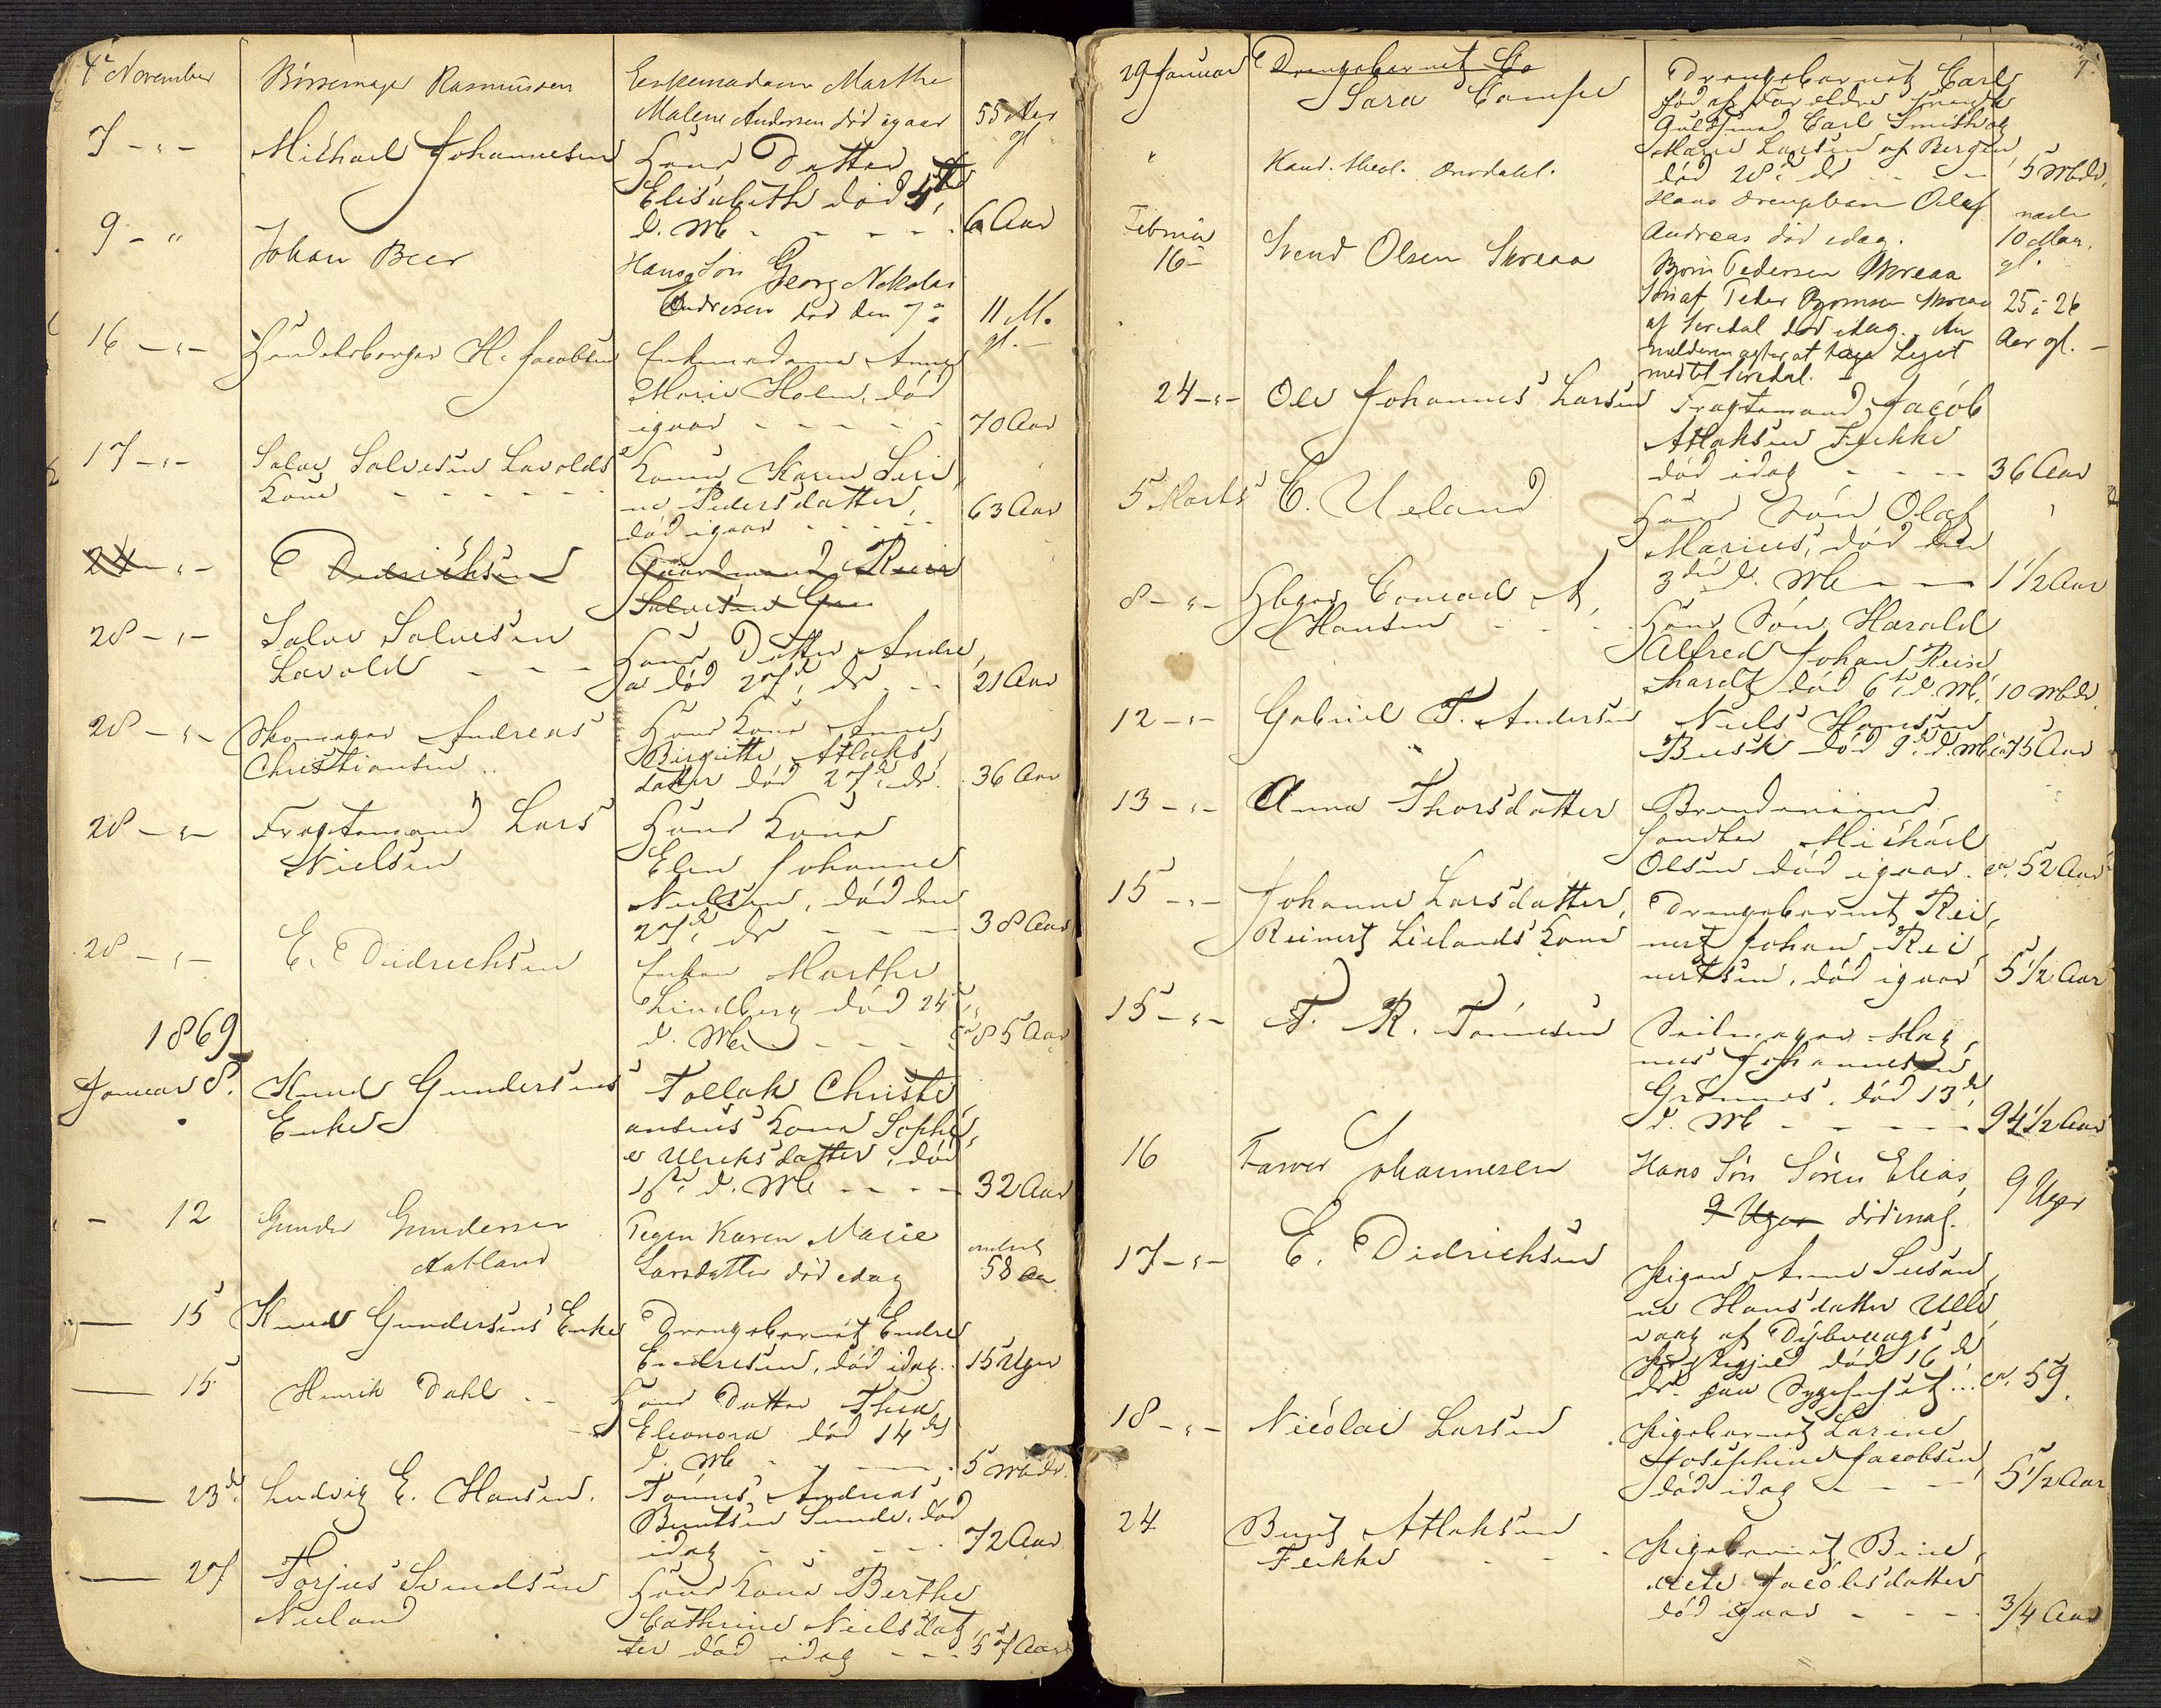 4de November Børsemager Rasmussen Enkemadam Marthe
Malene Andersen død igaar 55 Aar gl
7 - " - Michael Johannesen Hans Datter
Elisabeth død 4de
d. Mt. - - - - 6 Aar
9 - " Johan Beer Hans Søn Georg Nikolai
Endresen død den 7de 11 M. gl. -
16 - " - Handelsborger H. Jacobsen Enkemadame Anne
Marie Holm, død
igaar - - - - - 70 Aar
17 - " - Salve Salvesen Lavolds Kone Karen Seri,
Kone - - - - - - ne Pedersdatter,
død igaar - - - - - 63 Aar
24 - " - E Didrichsen Gaardmand Reier
Salvesen
28 - " - Salve Salvesen Hans Datter Andre,
Lavold - - - a død 27de ds. - - 21 Aar
28 - " - Skomager Andreas Hans Kone Anne
Christiansen .. Birgitte Atlaks,
datter død 27de ds. 36 Aar
28 - " - Fragtemand Lars Hans Kone
Nielsen Elen Johanne
Nielsen, død den
27de ds - - - 38 Aar
28 - " - E. Didrichsen Enken Marthe
Lindberg død 24de
d. Mt. - - - ca 85 Aar
1869
Januar 8. Knud Gundersens Tollak Christi
Enke ansens Kone Sophi,
e Ulriksdatter, død
1ste d. Mt. - - - - 32 Aar
- 12 Gunder Gundersen Pigen Karen Marie
Aatland Larsdatter død idag 58 Aar
— 15 Knud Gundersens Enke Drengebarnet Endre
Endresen, død idag. 15 Uger
— 15 Henrik Dahl - - Hans Datter Thea
Eleonora død 14de
d. Mt. - - - 5 Mdr.
— 23de Ludvig E. Hansen. Tønnes Andreas
Berntsen Sunde, død
idag - - - - - 72 Aar
— 27 Torjus Svendsen Hans Kone Berthe
Nuland Cathrine Nielsdat,
ter død idag - - - 57 Aar
29 Januar Drengebarnet Ca
Sara Drengebarnet Carl
født af Forældre
Guldsmed Carl Smith og
Marie Larsen af Bergen,
død 28de ds - - - 5 Mdr.
" Kand. theol. Omdahl. Hans Drengebarn Olaf
Andreas død idag. 10 Mdr. gl.
Februar
16 - Svend Olsen Skreaa Bjørn Pedersen Skreaa
Søn af Peder Bjørnsen Skreaa 25 à 26
af Siredal død idag. An Aar gl. -
melderen agter at tage Liget
med til Siredal.
24 - " - Ole Johannes Larsen Fragtemand Jacob
Atlaksen Feikke
død idag - - - - 36 Aar
5 Marts C. Ueland Hans Søn Olaf
Marius, død den
3die d. Mt. - - - 1 1/2 Aar
8 - " - Hbgr. Conrad A. Hans Søn Harald
Hansen - - - Alfred Johan Rein
hardt død 6te d. Mt. 10 Mdr.
12 - " - Gabriel T. Andersen Niels Hansen
Busk død 9de d. Mt. ca 75 Aar
13 - " - Anna Thorsdatter
Michael
Olsen død igaar. ca. 52 Aar
15 - " - Johanne Larsdatter, Drengebarnet Rei,
Reinert Lielands Kone nert Johan Rei,
nertsen, død igaar 5 1/2 Aar
15 - " - T. R. Tønnesen Seilmager Mag,
nus Johannesen
Grønnes, død 13de
d. Mt. - - - - 94 1/2 Aar
16 Farver Johannesen Hans Søn Søren Elias,
9 Uger død inat. 9 Uger
17 - " - E. Didrichsen Pigen Anne Susan,
ne Hansdatter Ulle,
vaag af Dybvaags
Præstegjeld død 16de
ds. paa Sygehuset ... ca. 59.
18 - " - Nicolai Larsen Pigebarnet Larine
Josephine Jacobsen,
død idag - - - - 5 1/2 Aar
24 Bernt Atlaksen Pigebarnet Bine,
Feikke - - - Jacobsdatter
død igaar - - - - 3/4 Aar